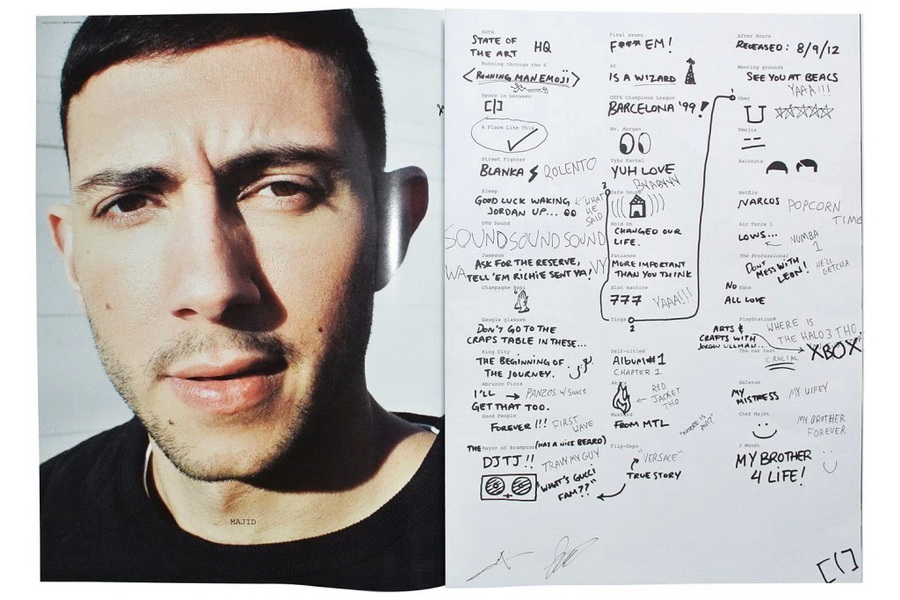 MAJID
STATE OF
THE ART HQ
Running through the 6
<RUNNING MAN EMOJI>
Space in between
[(]
A Place Like This
Street Fighter
BLANKA ROLENTO
Sleep
GOOD LUCK WAKING
JORDAN UP...
WHAT
HE
SAID
OVO Sound
SOUNDSOUNDSOUND
Jameson
ASK FOR THE RESERVE,
TELL 'EM RICHIE SENT YA!
Champagne Papi
Google glasses
DON'T GO TO THE
CRAPS TABLE IN THESE...
King City
THE BEGINNING OF
THE JOURNEY.
Abruzzo Pizza
I'LL → PANZOS W SAUCE
GET THAT TOO.
Good People
FOREVER!!! FIRST
WAVE
THE Mayor of Brampton (HAS A NICE BEARD)
DJTJ!! TRAVN MY GUY
"WHAT'S GUCCI
FAM??"
Final exams
F*** EM!
40
IS A WIZARD
UEFA Champions League
BARCELONA '99!
Ms. Morgan
Vybz Kartel
YUH LOVE
Safe house
Hold On
CHANGED OUR
LIFE.
Patience
MORE IMPORTANT
THAN YOU THINK
Slot machine
777 YAAA!!!
Tings
2
3
Self-titled
ALBUM#1
CHAPTER 1
← RED
JACKET
THO
Mustard
FROM MTL
Flip-Cups
"VERSACE"
TRUE STORY
After Hours
RELEASED: 8/9/12
Meeting grounds
SEE YOU AT BEACS
YAAA!!!
1
Uber
U
Emojis
Haircuts
Netflix
NARCOS POPCORN
TIME
Air Force 1
LOWS... ← NUMBA
1
The Professional
DON'T
MESS WITH
LEON! HE'LL
GETCHA
NO Egos
ALL LOVE
PlayStation4
ARTS &
CRAFTS WITH
JORDAN ULLMAN...
WHERE IS
THE HALO 3 THO.
XBOX
The car test
CRUCIAL
Ableton
MY
MISTRESS MY WIFEY
Chef Majet
MY BROTHER
FOREVER
J Mount
MY BROTHER
4 LIFE!
[(]